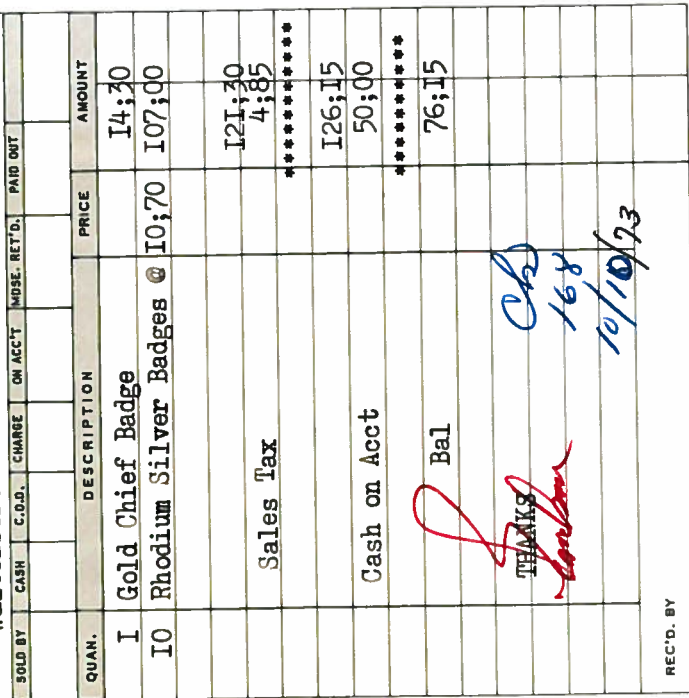 SOLD BY CASH C.O.D. CHARGE ON ACC'T MDSE. RET'D. PAID OUT
QUAN. DESCRIPTION PRICE AMOUNT
I Gold Chief Badge I4;30
IO Rhodium Silver Badges @ IO;70 IO7;00
I2I;30
Sales Tax 4;85
***********
I26;I5
Cash on Acct 50;00
***********
Bal 76;I5
THANKS
Ch
168
10/10/73
REC'D. BY